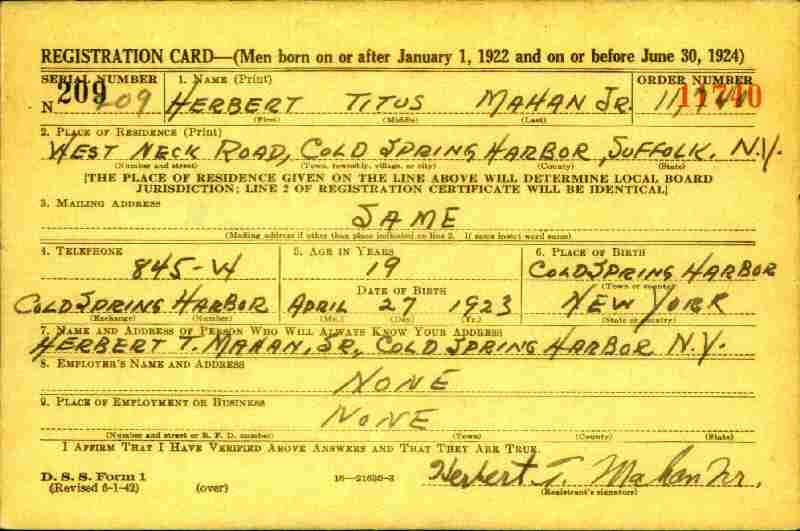 REGISTRATION CARD—(Men born on or after January 1, 1922 and on or before June 30, 1924)
SERIAL NUMBER 1. NAME (Print) ORDER NUMBER
N 209 209 HERBERT TITUS MAHAN JR. 11740
(First) (Middle) (Last)
2. PLACE OF RESIDENCE (Print)
WEST NECK ROAD, COLD SPRING HARBOR, SUFFOLK. N.Y.
(Number and street) (Town, township, village, or city) (County) (State)
[THE PLACE OF RESIDENCE GIVEN ON THE LINE ABOVE WILL DETERMINE LOCAL BOARD
JURISDICTION; LINE 2 OF REGISTRATION CERTIFICATE WILL BE IDENTICAL]
3. MAILING ADDRESS
SAME
(Mailing address if other than place indicated on line 2. If same insert word same)
4. TELEPHONE 5. AGE IN YEARS 6. PLACE OF BIRTH
845-W 19 COLD SPRING HARBOR
(Town or county)
DATE OF BIRTH
COLD SPRING HARBOR APRIL 27 1923 NEW YORK
(Exchange) (Number) (Mo.) (Day) (Yr.) (State or country)
7. NAME AND ADDRESS OF PERSON WHO WILL ALWAYS KNOW YOUR ADDRESS
HERBERT T. MAHAN, SR., COLD SPRING HARBOR N.Y.
8. EMPLOYER'S NAME AND ADDRESS
NONE
9. PLACE OF EMPLOYMENT OR BUSINESS
NONE
(Number and street or R. F. D. number) (Town) (County) (State)
I AFFIRM THAT I HAVE VERIFIED ABOVE ANSWERS AND THAT THEY ARE TRUE.
D. S. S. Form 1
(Revised 6-1-42) (over) 16—21630-2 Herbert T. Mahan Jr.
(Registrant's signature)